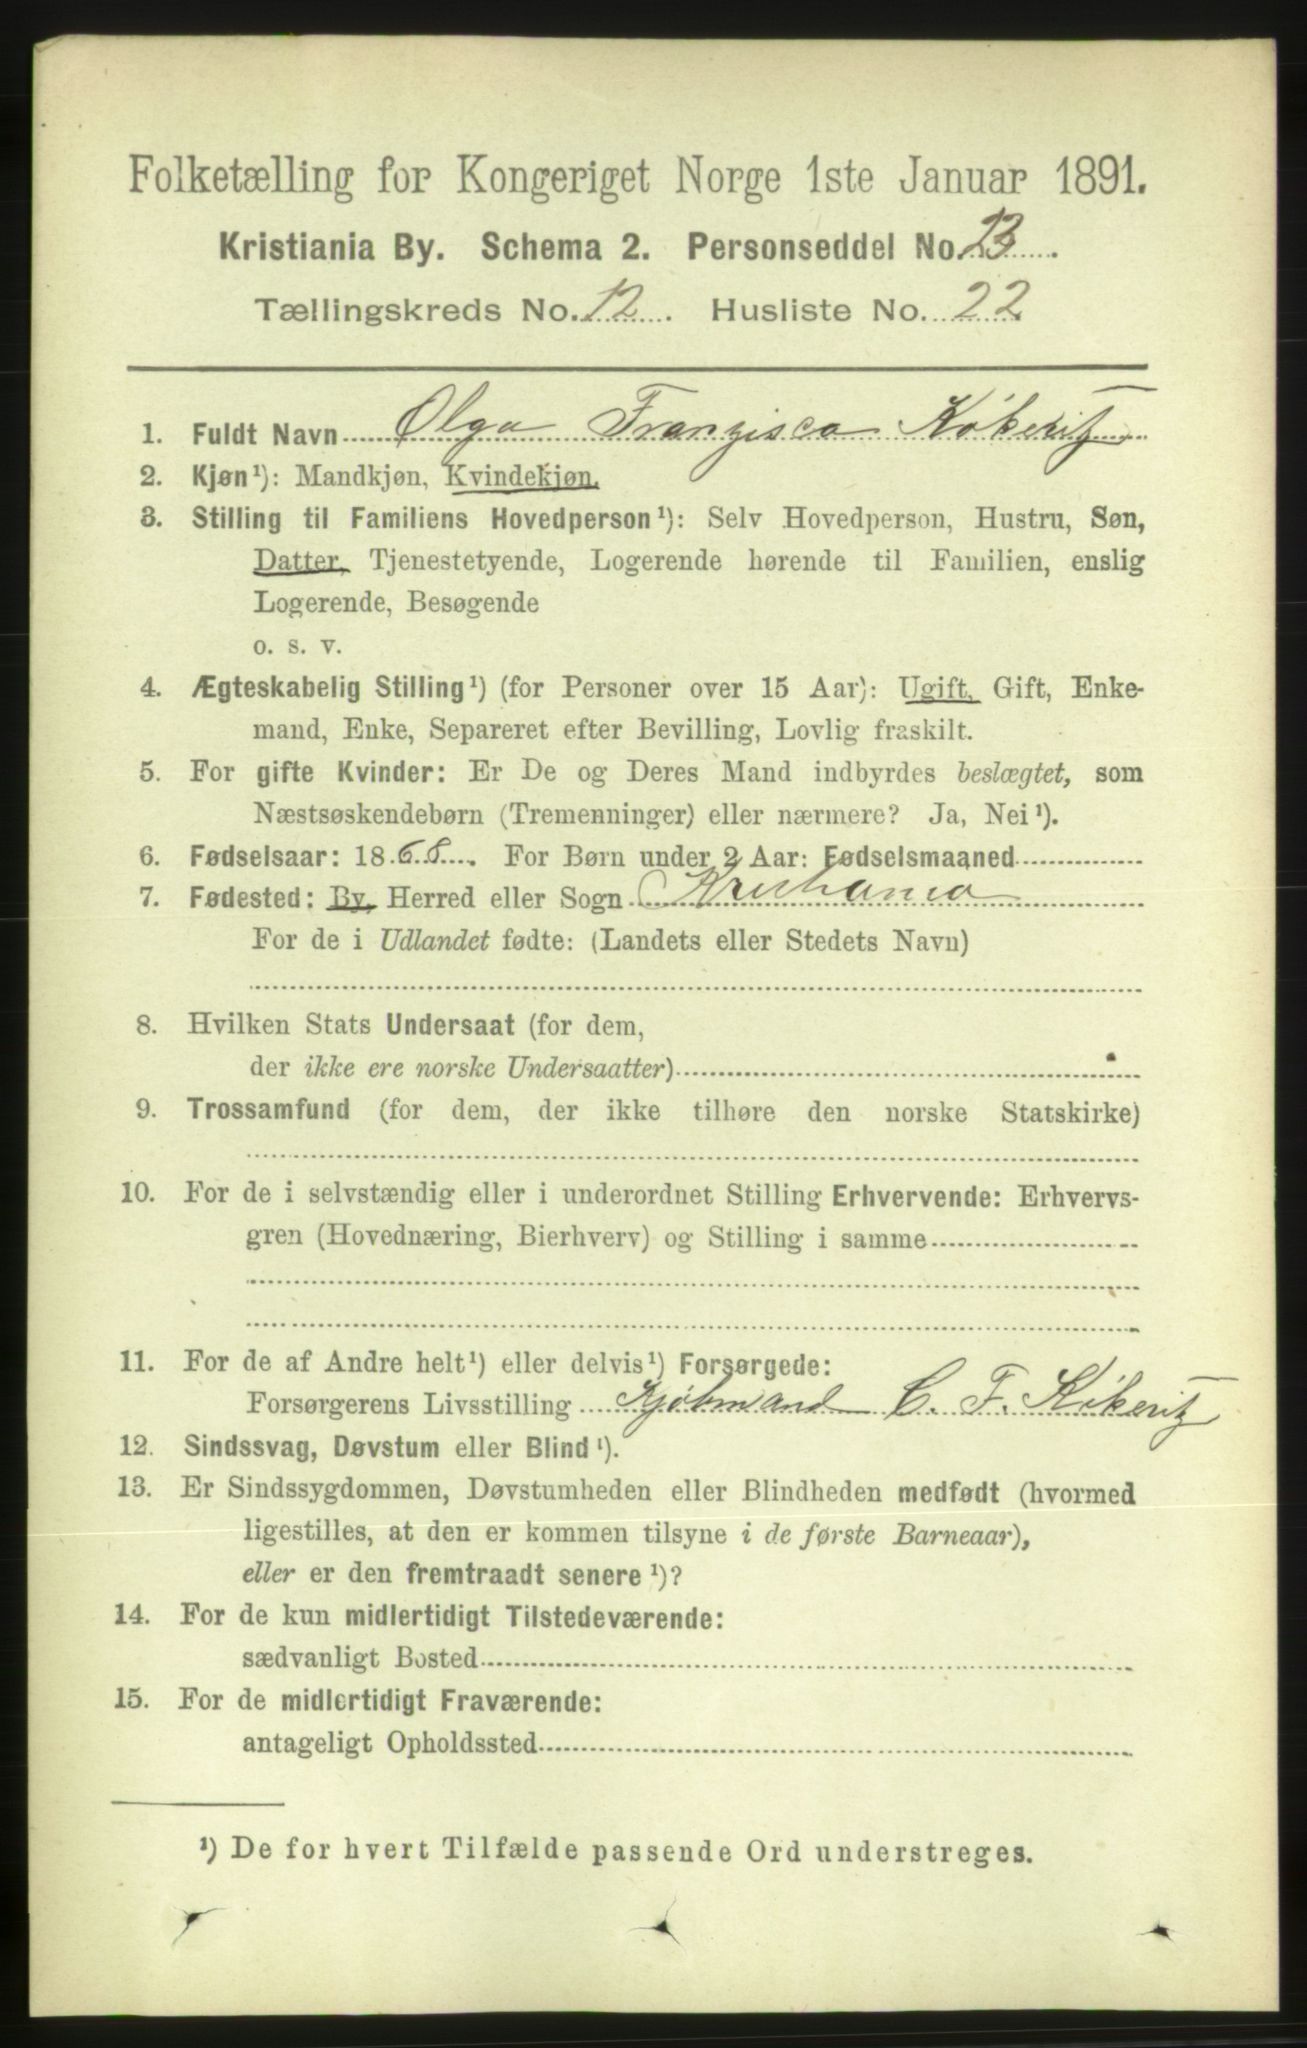 Folketælling for Kongeriget Norge 1ste Januar 1891.
Kristiania By. Schema 2. Personseddel No. 23.
Tællingskreds No. 12. Husliste No. 22
1. Fuldt Navn Olga Franzisca Kökeritz
2. Kjøn¹): Mandkjøn, Kvindekjøn.
3. Stilling til Familiens Hovedperson¹): Selv Hovedperson, Hustru, Søn,
Datter, Tjenestetyende, Logerende hørende til Familien, enslig
Logerende, Besøgende
o. s. v.
4. Ægteskabelig Stilling¹) (for Personer over 15 Aar): Ugift, Gift, Enke-
mand, Enke, Separeret efter Bevilling, Lovlig fraskilt.
5. For gifte Kvinder: Er De og Deres Mand indbyrdes beslægtet, som
Næstsøskendebørn (Tremenninger) eller nærmere? Ja, Nei¹).
6. Fødselsaar: 1868. For Børn under 2 Aar: Fødselsmaaned
7. Fødested: By, Herred eller Sogn Kristiania
For de i Udlandet fødte: (Landets eller Stedets Navn)
8. Hvilken Stats Undersaat (for dem,
der ikke ere norske Undersaatter)
9. Trossamfund (for dem, der ikke tilhøre den norske Statskirke)
10. For de i selvstændig eller i underordnet Stilling Erhvervende: Erhvervs-
gren (Hovednæring, Bierhverv) og Stilling i samme
11. For de af Andre helt¹) eller delvis¹) Forsørgede:
Forsørgerens Livsstilling Kjöbmand C. F. Kökeritz
12. Sindssvag, Døvstum eller Blind¹).
13. Er Sindssygdommen, Døvstumheden eller Blindheden medfødt (hvormed
ligestilles, at den er kommen tilsyne i de første Barneaar),
eller er den fremtraadt senere¹)?
14. For de kun midlertidigt Tilstedeværende:
sædvanligt Bosted
15. For de midlertidigt Fraværende:
antageligt Opholdssted
¹) De for hvert Tilfælde passende Ord understreges.